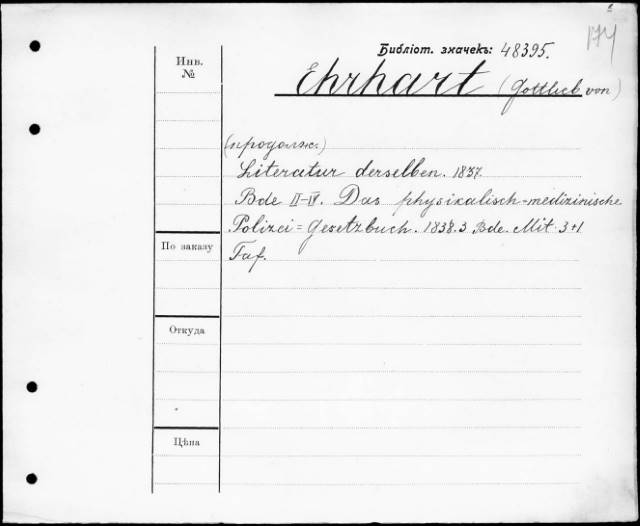 174
Библіот. значекъ: 48395.
Инв.
№
Ehrhart (Gottlieb von)
(продолж.)
Literatur derselben. 1837.
Bde II-IV. Das physikalisch-medizinische
Polizei=Gesetzbuch. 1838. 3 Bde. Mit 3+1
Taf.
По заказу
Откуда
Цѣна